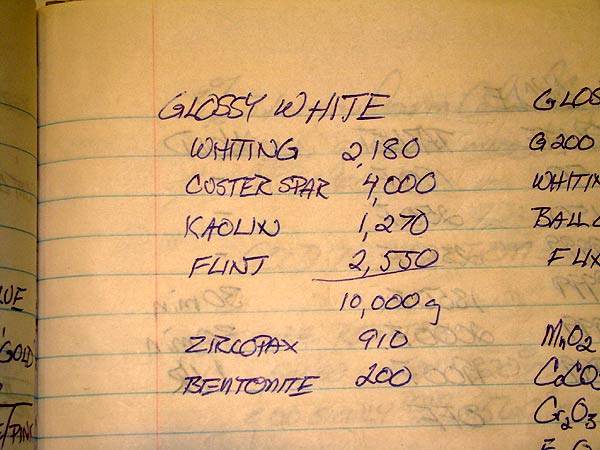 GLOSSY WHITE
WHITING 2,180
CUSTER SPAR 4,000
KAOLIN 1,270
FLINT 2,550
10,000 g
ZIRCOPAX 910
BENTONITE 200
GLOS
G200
WHITIN
BALL C
MnO2
CoCO
Cr2O3
GOLD